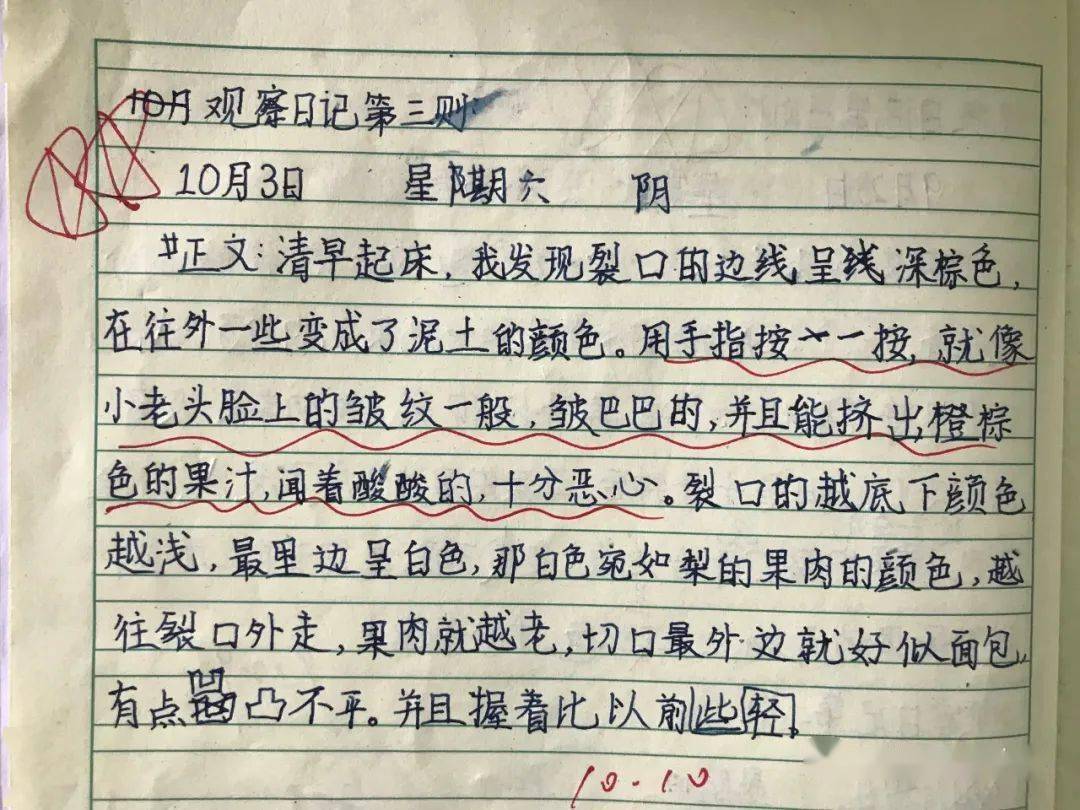 10月观察日记第三则:
10月3日 星期六 阴
正文:清早起床,我发现裂口的边线呈线深棕色,
在往外一些变成了泥土的颜色。用手指按一一按,就像
小老头脸上的皱纹一般,皱巴巴的,并且能挤出橙棕
色的果汁,闻着酸酸的,十分恶心。裂口的越底下颜色
越浅,最里边呈白色,那白色宛如梨的果肉的颜色,越
往裂口外走,果肉就越老,切口最外边就好似面包,
有点凹凸不平。并且握着比以前些轻。
10.10